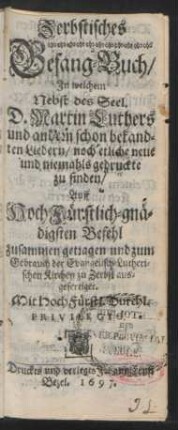 Zerbstisches
Gesang-Buch/
In welchem
Nebst des Seel.
D. Martin Luthers
und andern schon bekand-
ten Liedern/ noch etliche neue
und niemahls gedruckte
zu finden/
Auff
Hoch-Fürstlich-gnä-
digsten Befehl
zusammen getragen und zum
Gebrauch der Evangelisch-Lutheri-
schen Kirchen zu Zerbst aus-
gefertiget.
Mit Hoch-Fürstl. Durchl.
PRIVILEGIO.
ZERBST/
Druckts und verlegts
Bezel. 1697.